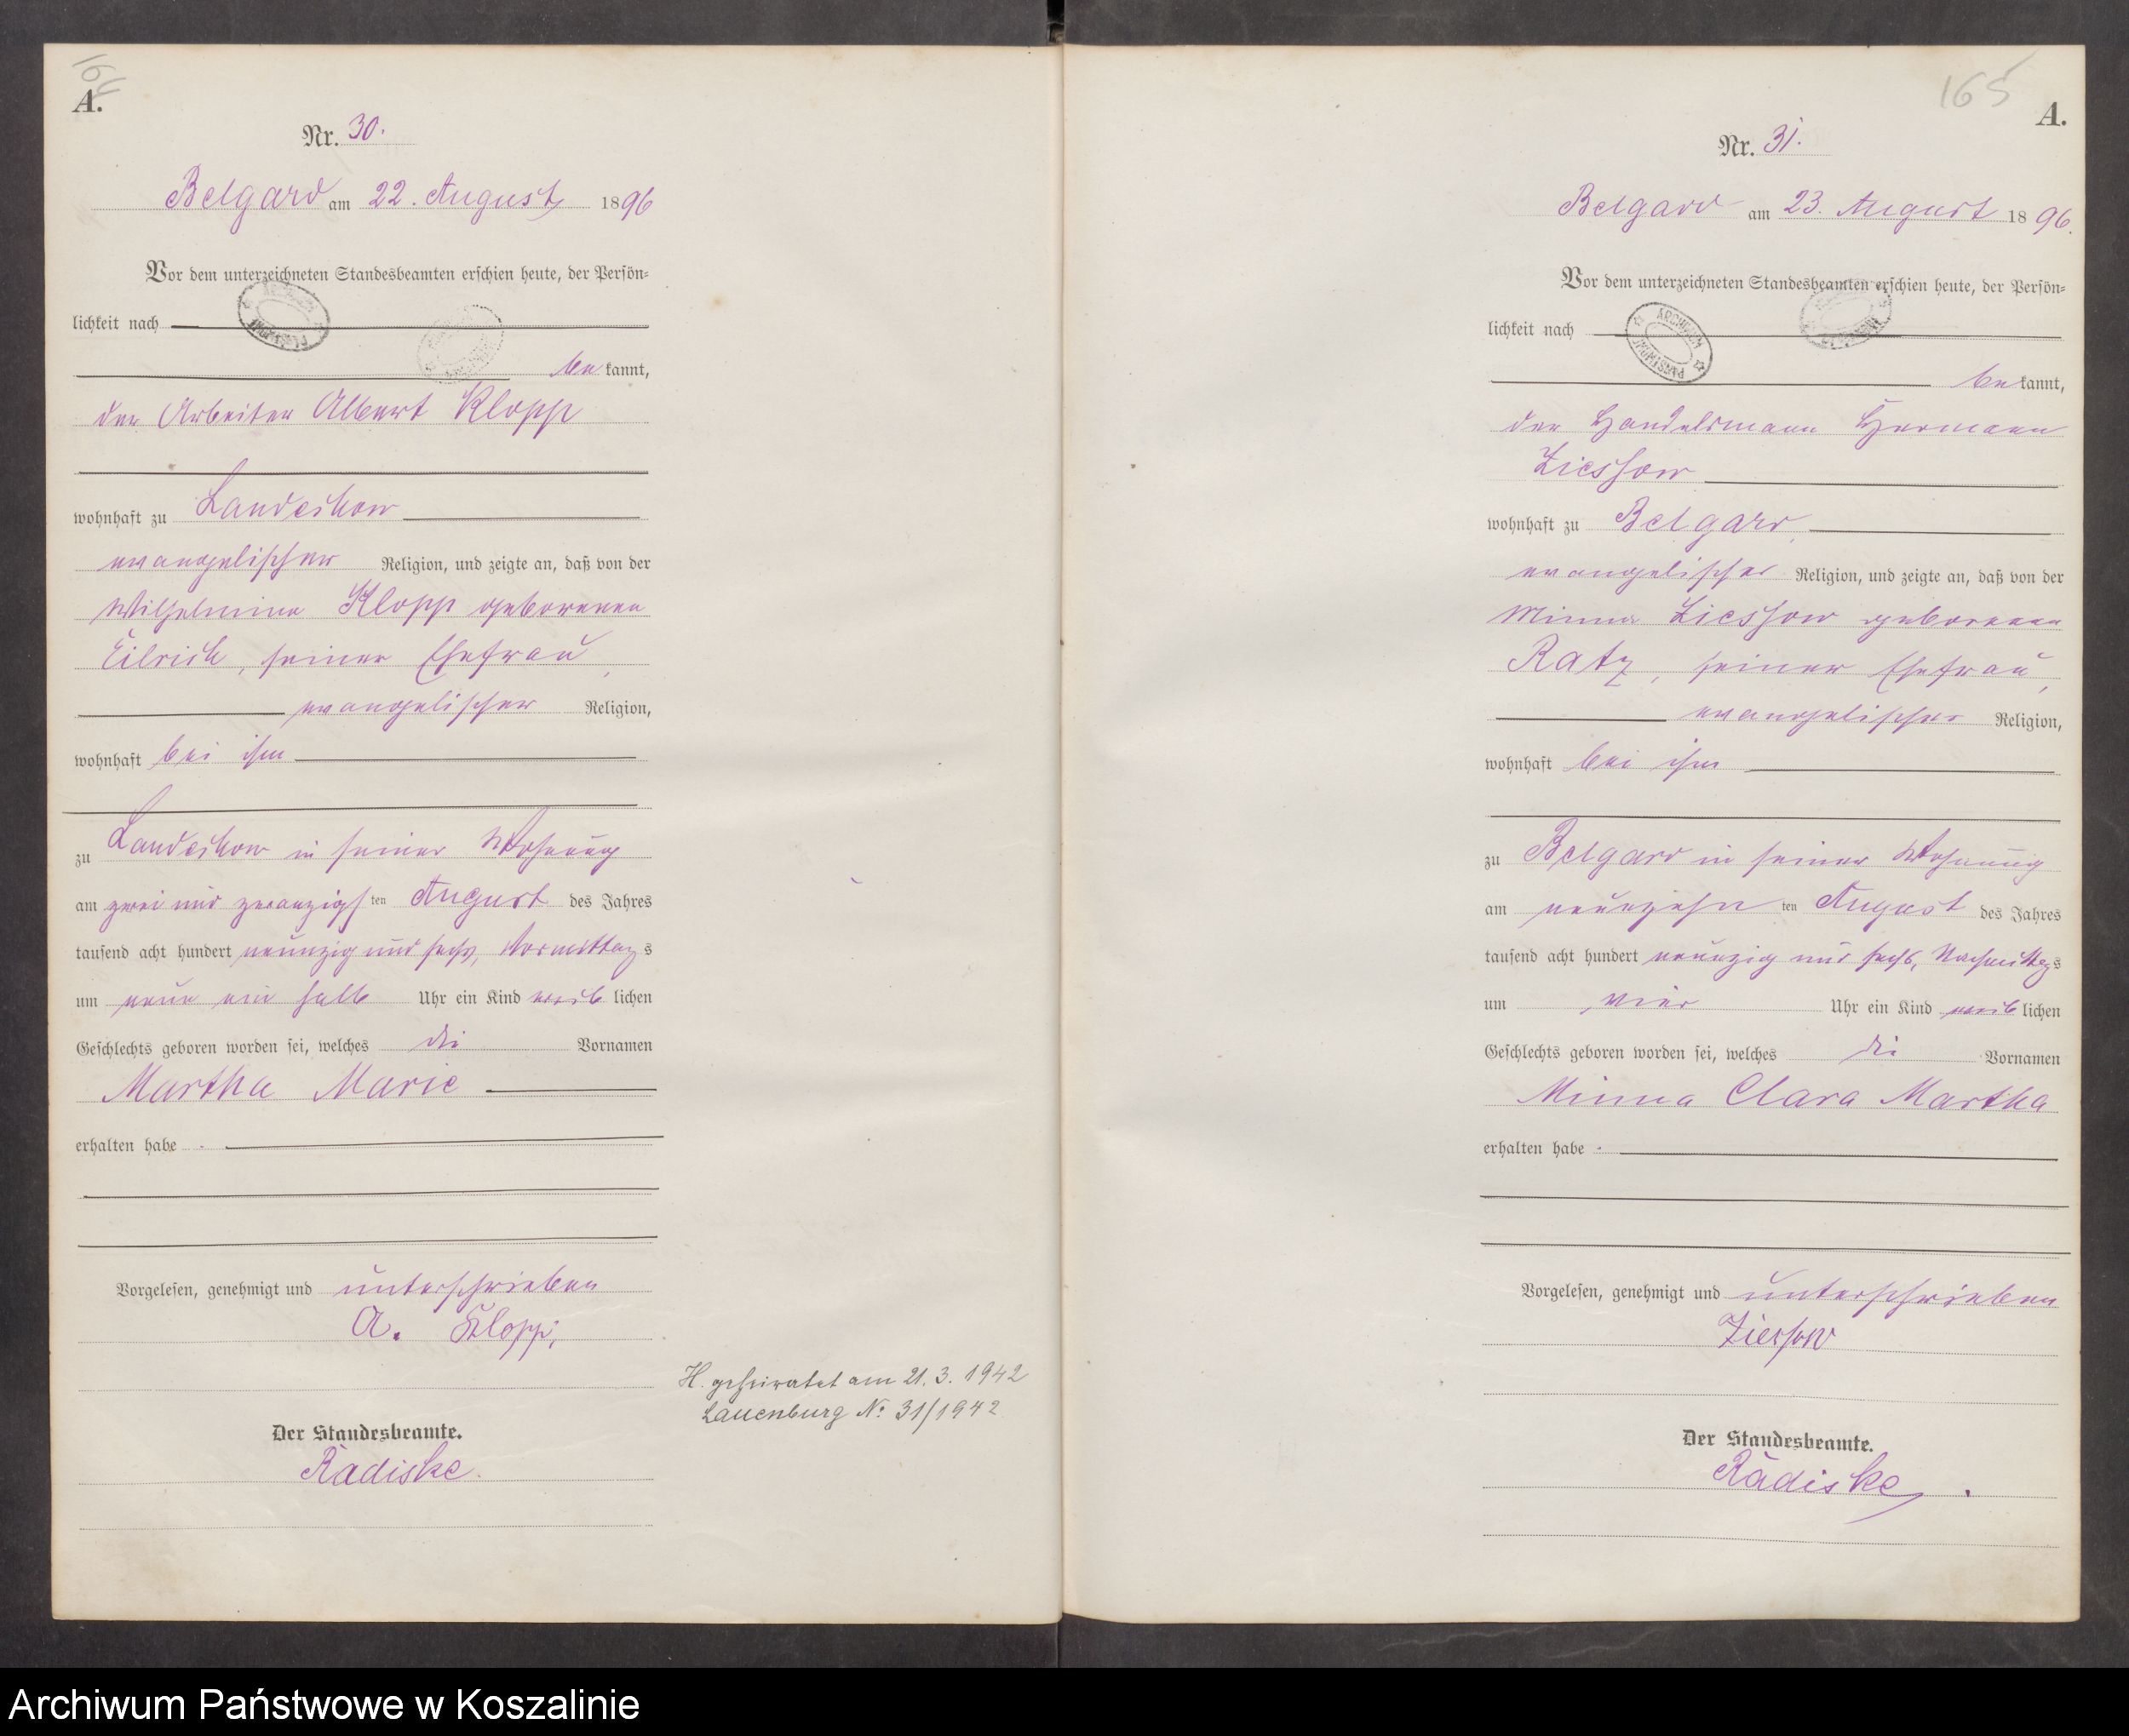 164
A.
Nr. 30.
Belgard am 22. August 1896
Vor dem unterzeichneten Standesbeamten erschien heute, der Persön-
lichkeit nach
be kannt,
der Arbeiter Albert Klopp
wohnhaft zu Landechow
evangelischer Religion, und zeigte an, daß von der
Wilhelmine Klopp geborenen
Eilrich, seiner Ehefrau,
evangelischer Religion,
wohnhaft bei ihm
zu Landechow in seiner Wohnung
am zwei und zwanzigsten August des Jahres
tausend acht hundert neunzig und sechs, Vormittags
um neun ein halb Uhr ein Kind weiblichen
Geschlechts geboren worden sei, welches die Vornamen
Martha Marie
erhalten habe.
Vorgelesen, genehmigt und unterschrieben
A. Klopp,
Der Standesbeamte.
Rädiske.
H. geheiratet am 21.3.1942
Lauenburg No 31/1942
165
A.
Nr. 31.
Belgard am 23. August 1896.
Vor dem unterzeichneten Standesbeamten erschien heute, der Persön-
lichkeit nach
be kannt,
der Handelsmann Hermann
Ziessow
wohnhaft zu Belgard,
evangelischer Religion, und zeigte an, daß von der
Minna Ziessow geborenen
Ratz, seiner Ehefrau,
evangelischer Religion,
wohnhaft bei ihm
zu Belgard in seiner Wohnung
am neunzehnten August des Jahres
tausend acht hundert neunzig und sechs, Nachmittags
um vier Uhr ein Kind weiblichen
Geschlechts geboren worden sei, welches die Vornamen
Minna Clara Martha
erhalten habe.
Vorgelesen, genehmigt und unterschrieben
Ziessow
Der Standesbeamte.
Rädiske.
Archiwum Państwowe w Koszalinie